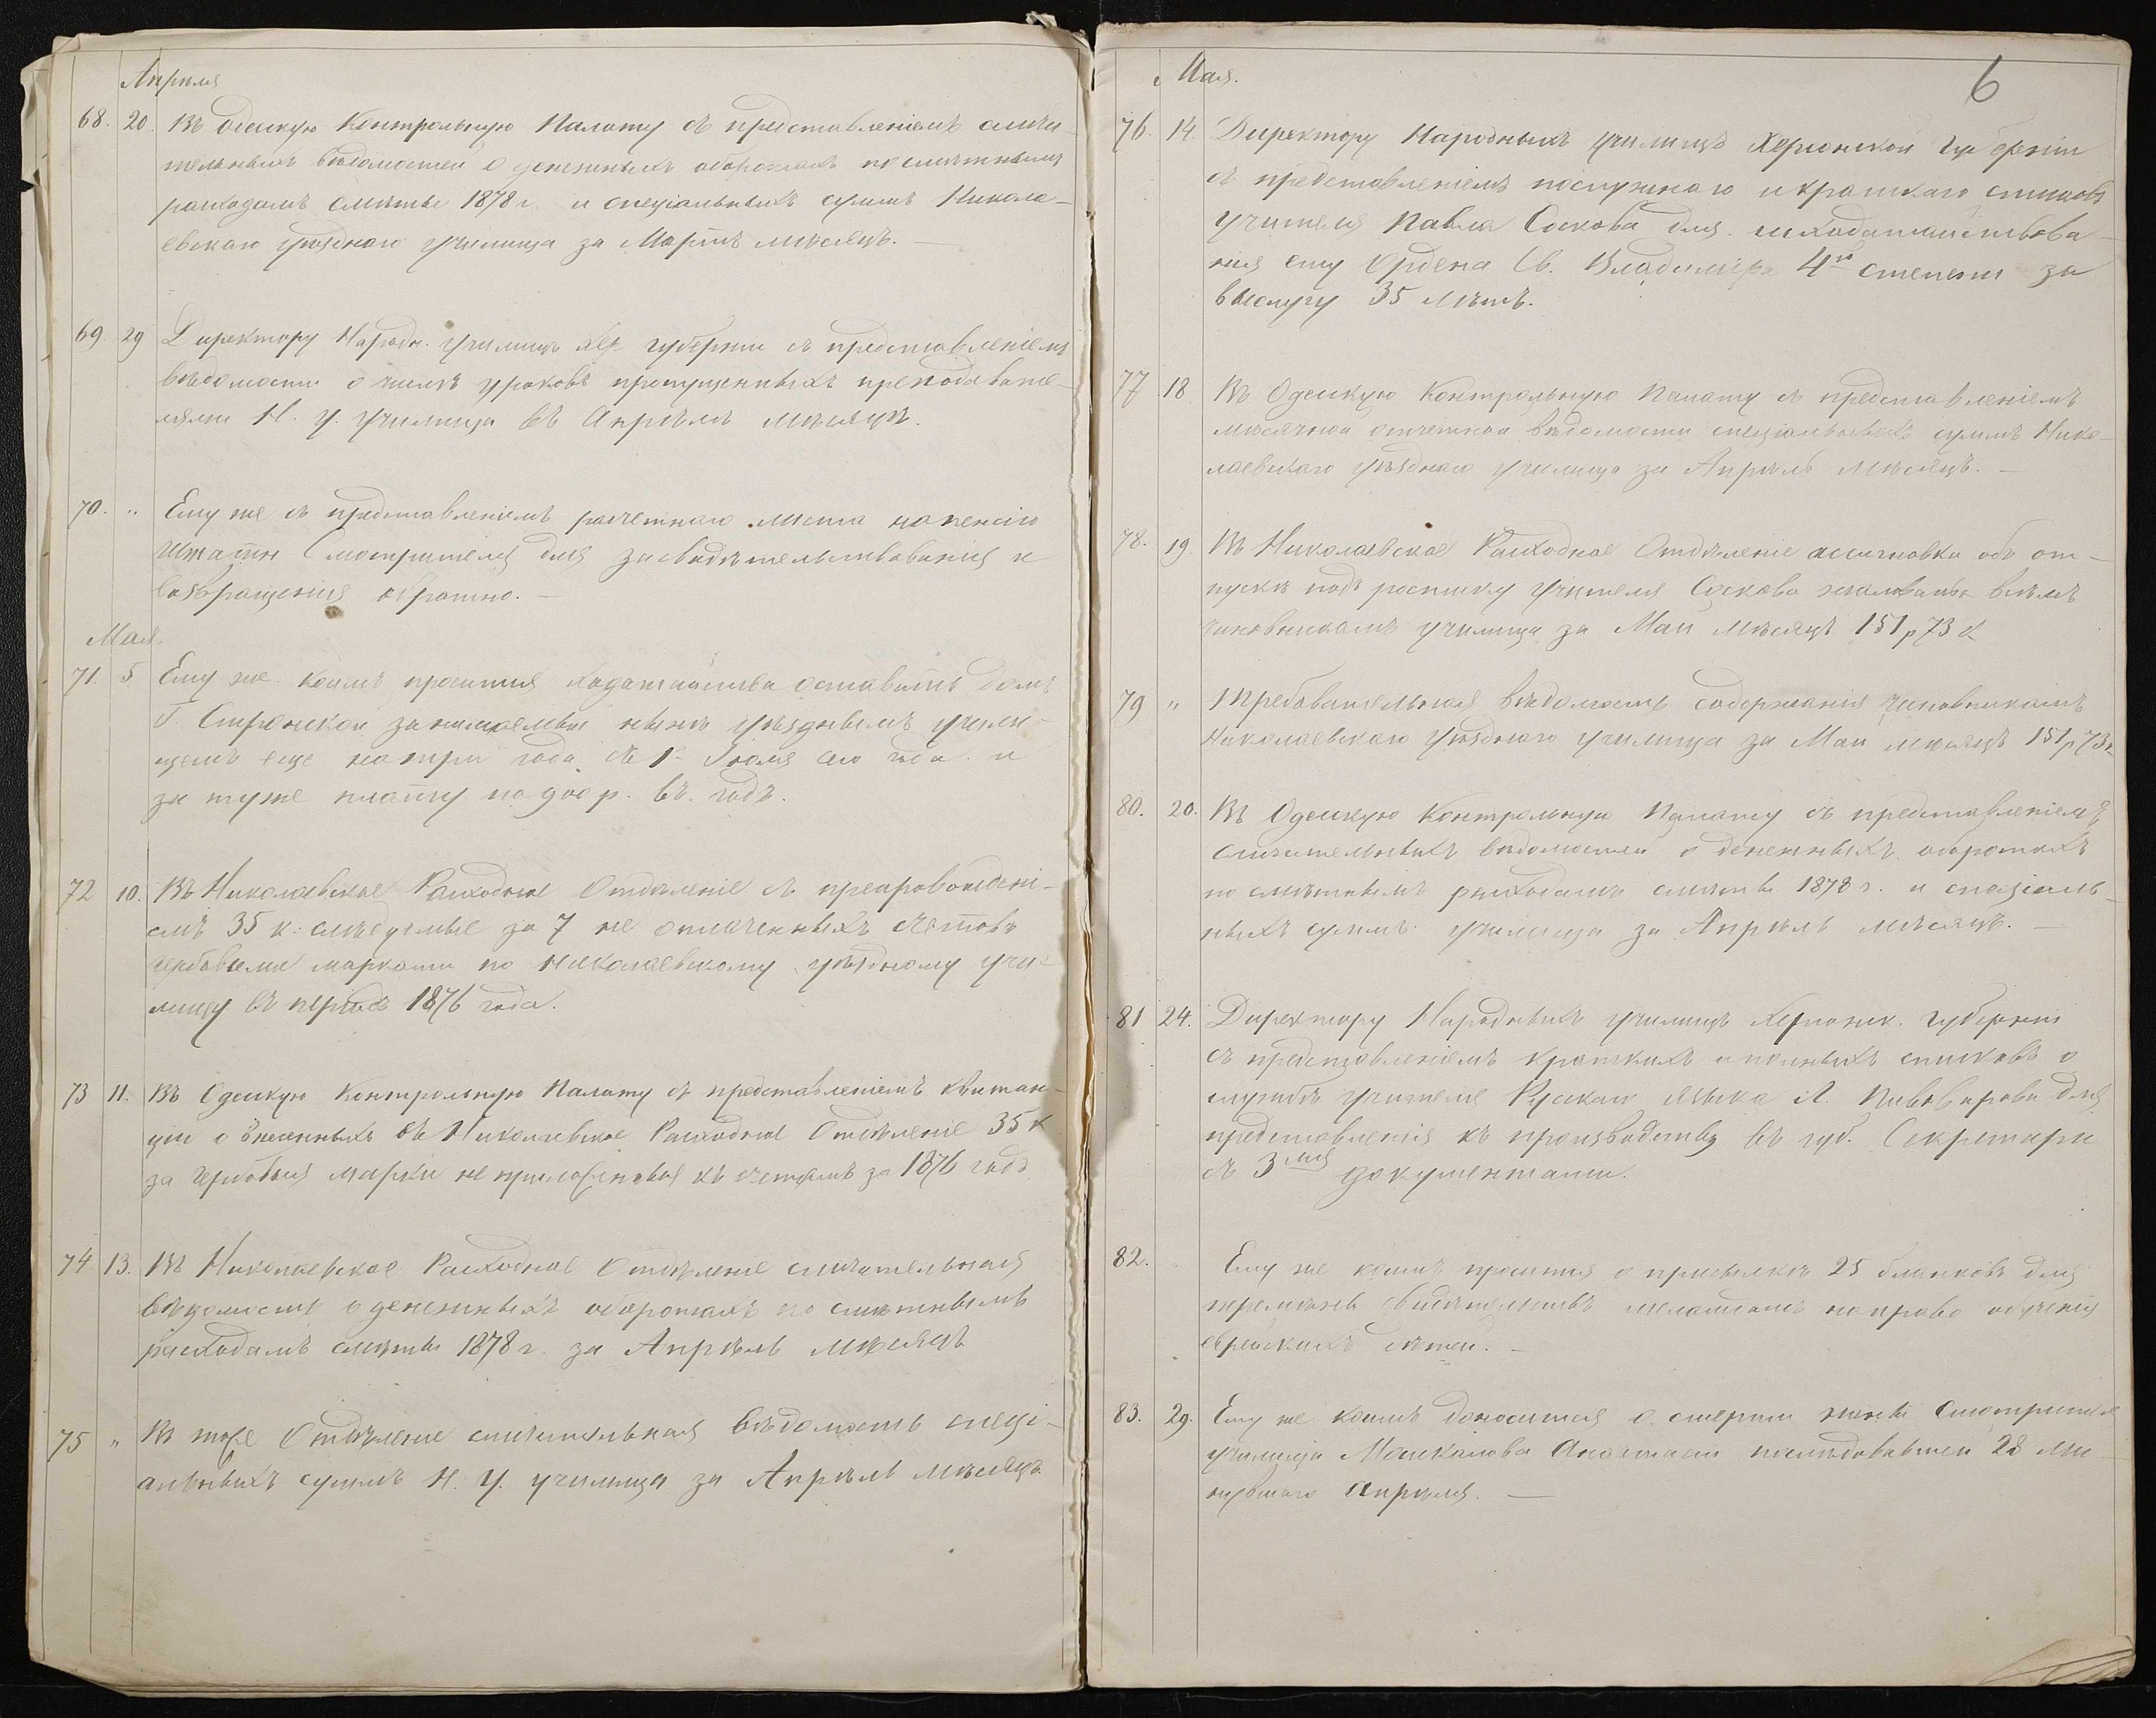 Апрѣля
68. 20. Въ Одесскую Контрольную Палату съ представленіемъ сличи-
тельныхъ вѣдомостей о денежныхъ оборотахъ по смѣтнымъ
расходамъ смѣты 1878 г. и спеціальныхъ суммъ Никола-
евскаго уѣзднаго училища за Мартъ мѣсяцъ. —
69. 29 Директору Народн. училищъ Хер. губерніи съ представленіемъ
вѣдомости о числѣ уроковъ пропущенныхъ преподавате-
лями Н. У. Училища въ Апрѣлѣ мѣсяцѣ.
70. " Ему же съ представленіемъ расчетнаго листа на пенсію
Штатн Смотрителя для засвидѣтельствованія и
возвращенія обратно. —
Мая.
71. 5 Ему же коимъ просится ходатайства оставить домъ
Г. занимаемый нынѣ уѣзднымъ учили-
щемъ еще на три года съ 1 Іюля сего года и
за туже плату по 900 р. въ годъ.
72 10. Въ Николаевское Расходное Отдѣленіе съ препровожденi-
емъ 35 к. слѣдуемые за 7 не оплаченныхъ счетовъ
гербовыми марками по Николаевскому уѣздному учи-
лищу въ 1876 года.
73 11. Въ Одесскую Контрольную Палату съ представленіемъ квитан-
ціи о внесенныхъ въ Николаевское Расходное Отдѣленіе 35 к
за гербовыя марки не приложенныя къ счетамъ за 1876 годъ
74 13. Въ Николаевское Расходное Отдѣленіе сличительная
вѣдомость о денежныхъ оборотахъ по смѣтнымъ
расходамъ смѣты 1878 г. за Апрѣль мѣсяцъ
75 " Въ тоже Отдѣленіе сличительная вѣдомость спеці-
альныхъ суммъ Н. У. училища за Апрѣль мѣсяцъ.
Мая.
6
76. 14 Директору Народныхъ училищъ Херсонской Губерніи
съ представленіемъ послужнаго и краткаго списковъ
учителя Павла Соскова для исходатайствова-
нія ему Ордена Св. Владиміра 4й степени за
выслугу 35 лѣтъ.
77 18 Въ Одесскую Контрольную Палату съ представленіемъ
мѣсячной отчетной вѣдомости спеціальныхъ суммъ Нико-
лаевскаго уѣзднаго училища за Апрѣль мѣсяцъ. —
78. 19 Въ Николаевское Расходное Отдѣленіе ассигновка объ от-
пускѣ подъ росписку Учителя Соскова жалованья всѣмъ
чиновникамъ училища за Май мѣсяцъ 151 р 73 к
79 " Требовательная вѣдомость содержанія чиновникамъ
Николаевскаго уѣзднаго училища за Май мѣсяцъ 151 р 73 к
80. 20. Въ Одесскую Контрольную Палату съ представленіемъ
сличительныхъ вѣдомостей о денежныхъ оборотахъ
по смѣтнымъ расходамъ смѣты 1878 г. и спеціаль-
ныхъ суммъ училища за Апрѣль мѣсяцъ. —
81 24. Директору Народныхъ училищъ Херсонск. губерніи
съ представленіемъ краткихъ и полныхъ списковъ о
службѣ учителя Русскаго языка Л. Пивоварова для
представленія къ производству въ губ. Секретари
съ 3мя документами.
82. Ему же коимъ просится о присылкѣ 25 бланковъ для
перемѣны свидѣтельствъ меламдамъ на право обученія
еврейскихъ дѣтей. —
83. 29. Ему же коимъ доносится о смерти жены Смотрителя
училища Анастасіи послѣдовавшей 28 ми-
нувшаго Апрѣля. —